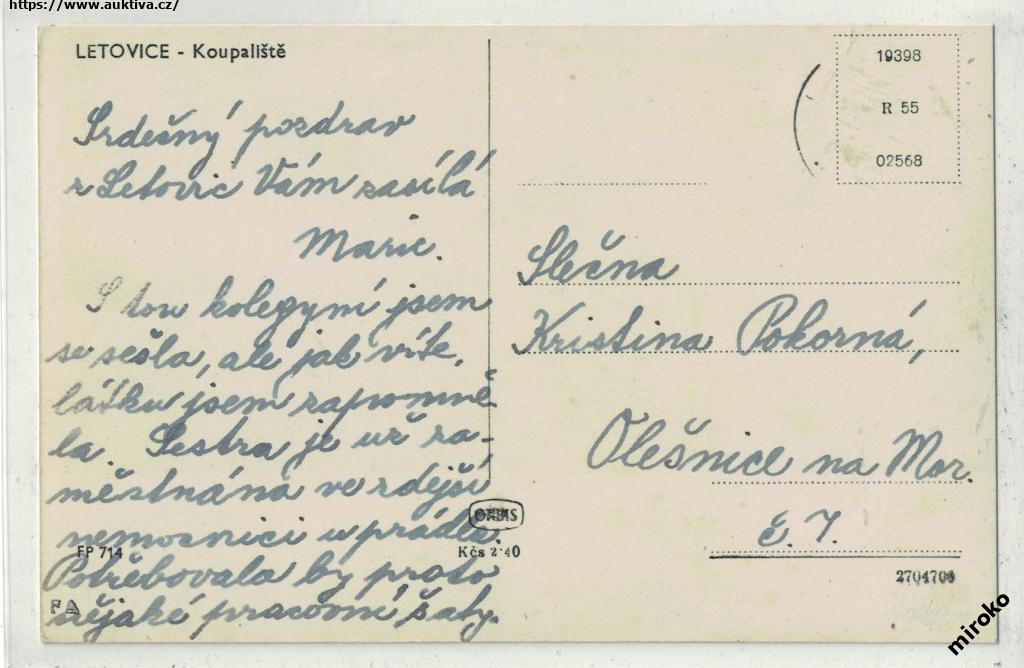 https://www.auktiva.cz/
LETOVICE - Koupaliště
Srdešný pozdrav
z Letovic Vám zasílá
Marie.
S tou kolegyní jsem
se sešla, ale jak víte,
látku jsem zapomně
la. Sestra je už za-
městnána ve zdejší
nemocnici u prádla.
Potřebovala by proto
nějaké pracovní šaty.
FP 714
FA
ORBIS
Kčs 2·40
19398
R 55
02568
Slečna
Kristina Pokorná,
Olešnice na Mor.
č. 7.
2704704
miroko